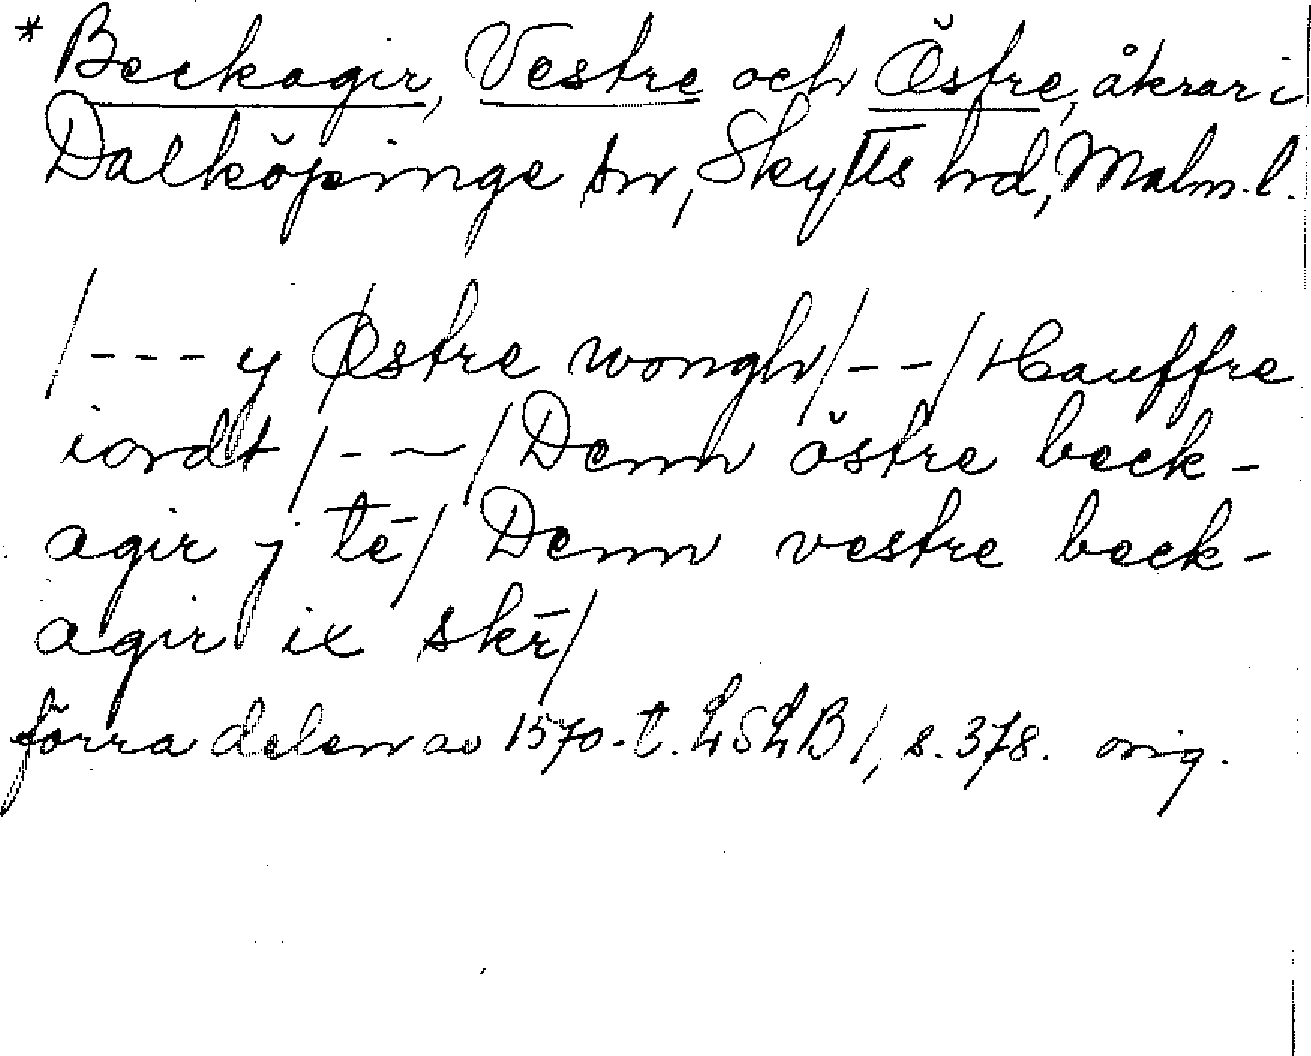 * Beckagir, Vestre och Östre, åkrar i
Dalköpinge sn, Skytts hd, Malm. l.
/--- y Østre wongh/--/Hauffre
iordt/--/Denn östre beck-
agir j tē/ Denn vestre beck-
agir ix skr̄/
förra delen av 1570-t. LSLB1, s. 378. orig.